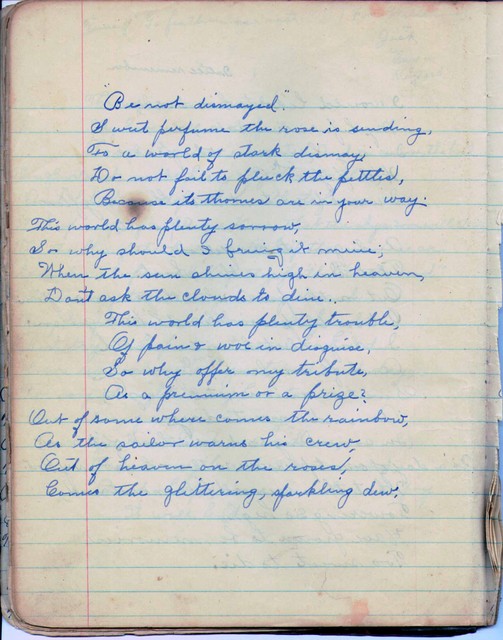 "Be not dismayed."
Sweet perfume the rose is sending,
To a world of stark dismay;
Do not fail to pluck the pettles,
Because its thornes are in your way.
This world has plenty sorrow,
So why should I bring it mine;
When the sun shines high in heaven,
Dont ask the clouds to dine.
This world has plenty trouble,
Of pain & woe in disguise,
So why offer my tribute,
As a premium or a prize?
Out of some where comes the rainbow,
As the sailor warns his crew,
Out of heaven on the roses,
Comes the glittering, sparkling dew.